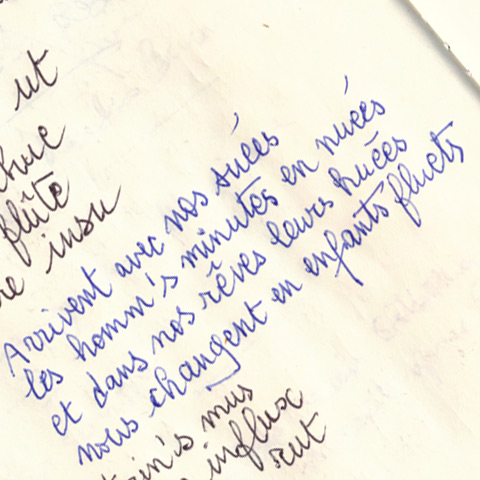 ut
flûte
insu
Arrivent avec nos suées
les homm's minutes en nuées
et dans nos rêves leurs huées
nous changent en enfants fluets
mus
influx
rut